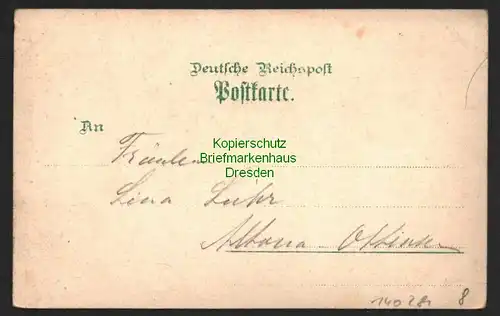 Deutsche Reichspost
Postkarte.
An
Fräulein
Lina Lühr
Altona-Ottens
Kopierschutz
Briefmarkenhaus
Dresden
8